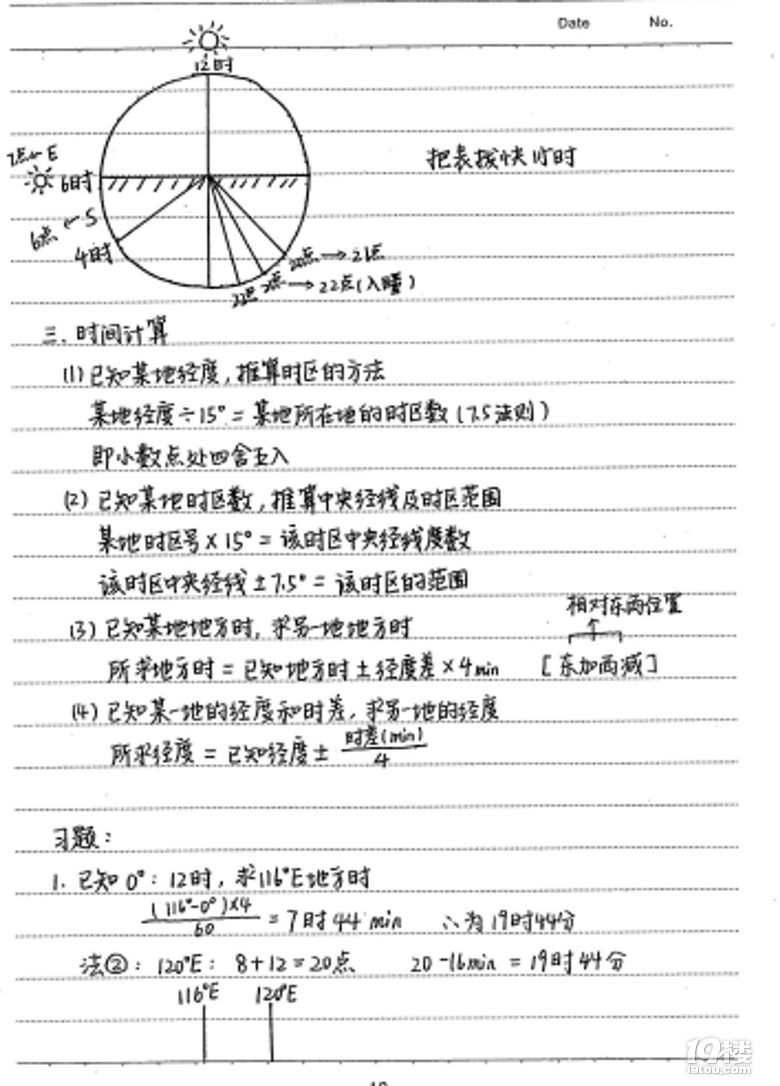 Date No.
12时
7点← E
6时
把表拨快1小时
6点 ← S
4时
20点 → 21点
22点 21点 → 22点(入睡)
三. 时间计算
(1) 已知某地经度, 推算时区的方法
某地经度÷15° = 某地所在地的时区数 (7.5法则)
即小数点处四舍五入
(2) 已知某地时区数, 推算中央经线及时区范围
某地时区号×15° = 该时区中央经线度数
该时区中央经线±7.5° = 该时区的范围
相对东西位置
(3) 已知某地地方时, 求另一地地方时
所求地方时 = 已知地方时±经度差×4min [东加西减]
(4) 已知某一地的经度和时差, 求另一地的经度
所求经度 = 已知经度± 时差(min)/4
习题:
1. 已知0°: 12时, 求116°E地方时
(116°-0°)×4/60 = 7时44min ∴为19时44分
法②: 120°E: 8+12=20点 20-16min = 19时44分
116°E 120°E
19楼
19lou.com